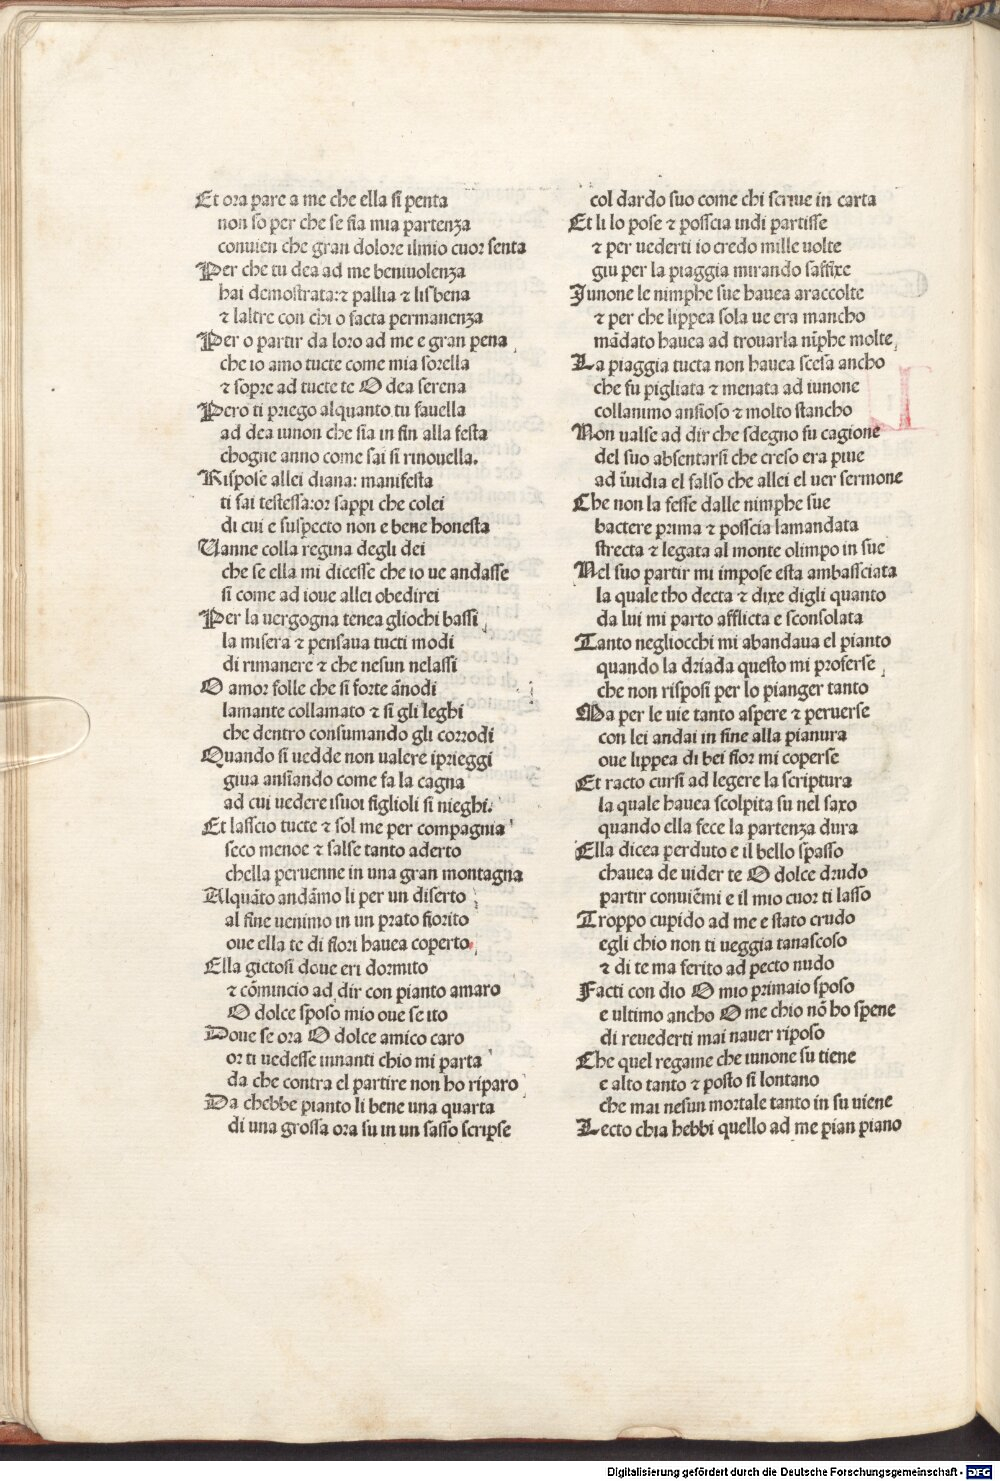 Et ora pare a me che ella si penta
non so per che se sia mia partenza
conuien che gran dolore ilmio cuor senta
Per che tu dea ad me beniuolenza
hai demostrata:⁊ pallia ⁊ lisbena
⁊ laltre con chi o facta permanenza
Per o partir da loro ad me e gran pena
che io amo tucte come mia sorella
⁊ sopre ad tucte te O dea serena
Pero ti priego alquanto tu fauella
ad dea iunon che sia in fin alla festa
chogne anno come sai si rinouella.
Rispose allei diana: manifesta
ti fai testessa:or sappi che colei
di cui e suspecto non e bene honesta
Uanne colla regina degli dei
che se ella mi dicesse che io ue andasse
si come ad ioue allei obedirei
Per la uergogna tenea gliochi bassi
la misera ⁊ pensaua tucti modi
di rimanere ⁊ che nesun nelassi
O amor folle che si forte ānodi
lamante collamato ⁊ si gli leghi
che dentro consumando gli corrodi
Quando si uedde non ualere iprieggi
giua ansiando come fa la cagna
ad cui uedere isuoi figlioli si nieghi.
Et lasscio tucte ⁊ sol me per compagnia
seco menoe ⁊ salse tanto aderto
chella peruenne in una gran montagna
Alquāto andāmo li per un diserto
al fine uenimo in un prato fiorito
oue ella te di fiori hauea coperto
Ella gictosi doue eri dormito
⁊ cōmincio ad dir con pianto amaro
O dolce sposo mio oue se ito
Doue se ora O dolce amico caro
or ti uedesse innanti chio mi parta
da che contra el partire non ho riparo
Da chebbe pianto li bene una quarta
di una grossa ora su in un sasso scripse
col dardo suo come chi scriue in carta
Et li lo pose ⁊ posscia indi partisse
⁊ per uederti io credo mille uolte
giu per la piaggia mirando saffixe
Iunone le nimphe sue hauea araccolte
⁊ per che lippea sola ue era mancho
mādato hauea ad trouarla nīphe molte
La piaggia tucta non hauea scesa ancho
che fu pigliata ⁊ menata ad iunone
collanimo ansioso ⁊ molto stancho
Non ualse ad dir che sdegno fu cagione
del suo absentarsi che creso era piue
ad īuidia el falso che allei el uer sermone
Che non la fesse dalle nimphe sue
bactere prima ⁊ posscia lamandata
strecta ⁊ legata al monte olimpo in sue
Nel suo partir mi impose esta ambassciata
la quale tho decta ⁊ dixe digli quanto
da lui mi parto afflicta e sconsolata
Tanto negliocchi mi abandaua el pianto
quando la driada questo mi proferse
che non risposi per lo pianger tanto
Ma per le uie tanto aspere ⁊ peruerse
con lei andai in fine alla pianura
oue lippea di bei fior mi coperse
Et racto cursi ad legere la scriptura
la quale hauea scolpita su nel saxo
quando ella fece la partenza dura
Ella dicea perduto e il bello spasso
chauea de uider te O dolce drudo
partir conuiēmi e il mio cuor ti lasso
Troppo cupido ad me e stato crudo
egli chio non ti ueggia tanascoso
⁊ di te ma ferito ad pecto nudo
Facti con dio O mio primaio sposo
e ultimo ancho O me chio nō ho spene
di reuederti mai nauer riposo
Che quel regame che iunone su tiene
e alto tanto ⁊ posto si lontano
che mai nesun mortale tanto in su uiene
Lecto chia hebbi quello ad me pian piano
L
Digitalisierung gefördert durch die Deutsche Forschungsgemeinschaft - DFG